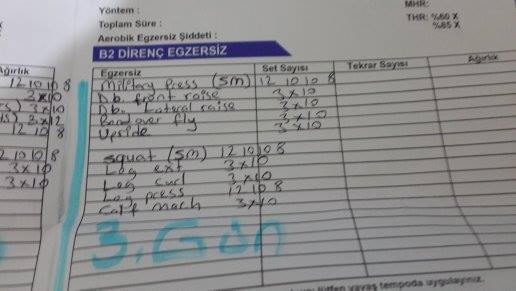 Yöntem :
MHR:
Toplam Süre :
THR: %60 X
%85 X
Aerobik Egzersiz Şiddeti :
B2 DİRENÇ EGZERSİZ
Ağırlık
Egzersiz Set Sayısı Tekrar Sayısı Ağırlık
12 10 10 8
Military Press (SM) 12 10 10 8
3x10
Db. front raise 3x10
3x10
Db. Lateral raise 3x10
3x12
Bend over fly 3x10
12 10 8
Upride 3x10
12 10 10 8
squat (SM) 12 10 10 8
3x10
Leg ext 3x10
3x10
Leg curl 3x10
Leg press 12 10 8
Calf mach 3x10
3. Gün
lütfen yavaş tempoda uygulayınız.